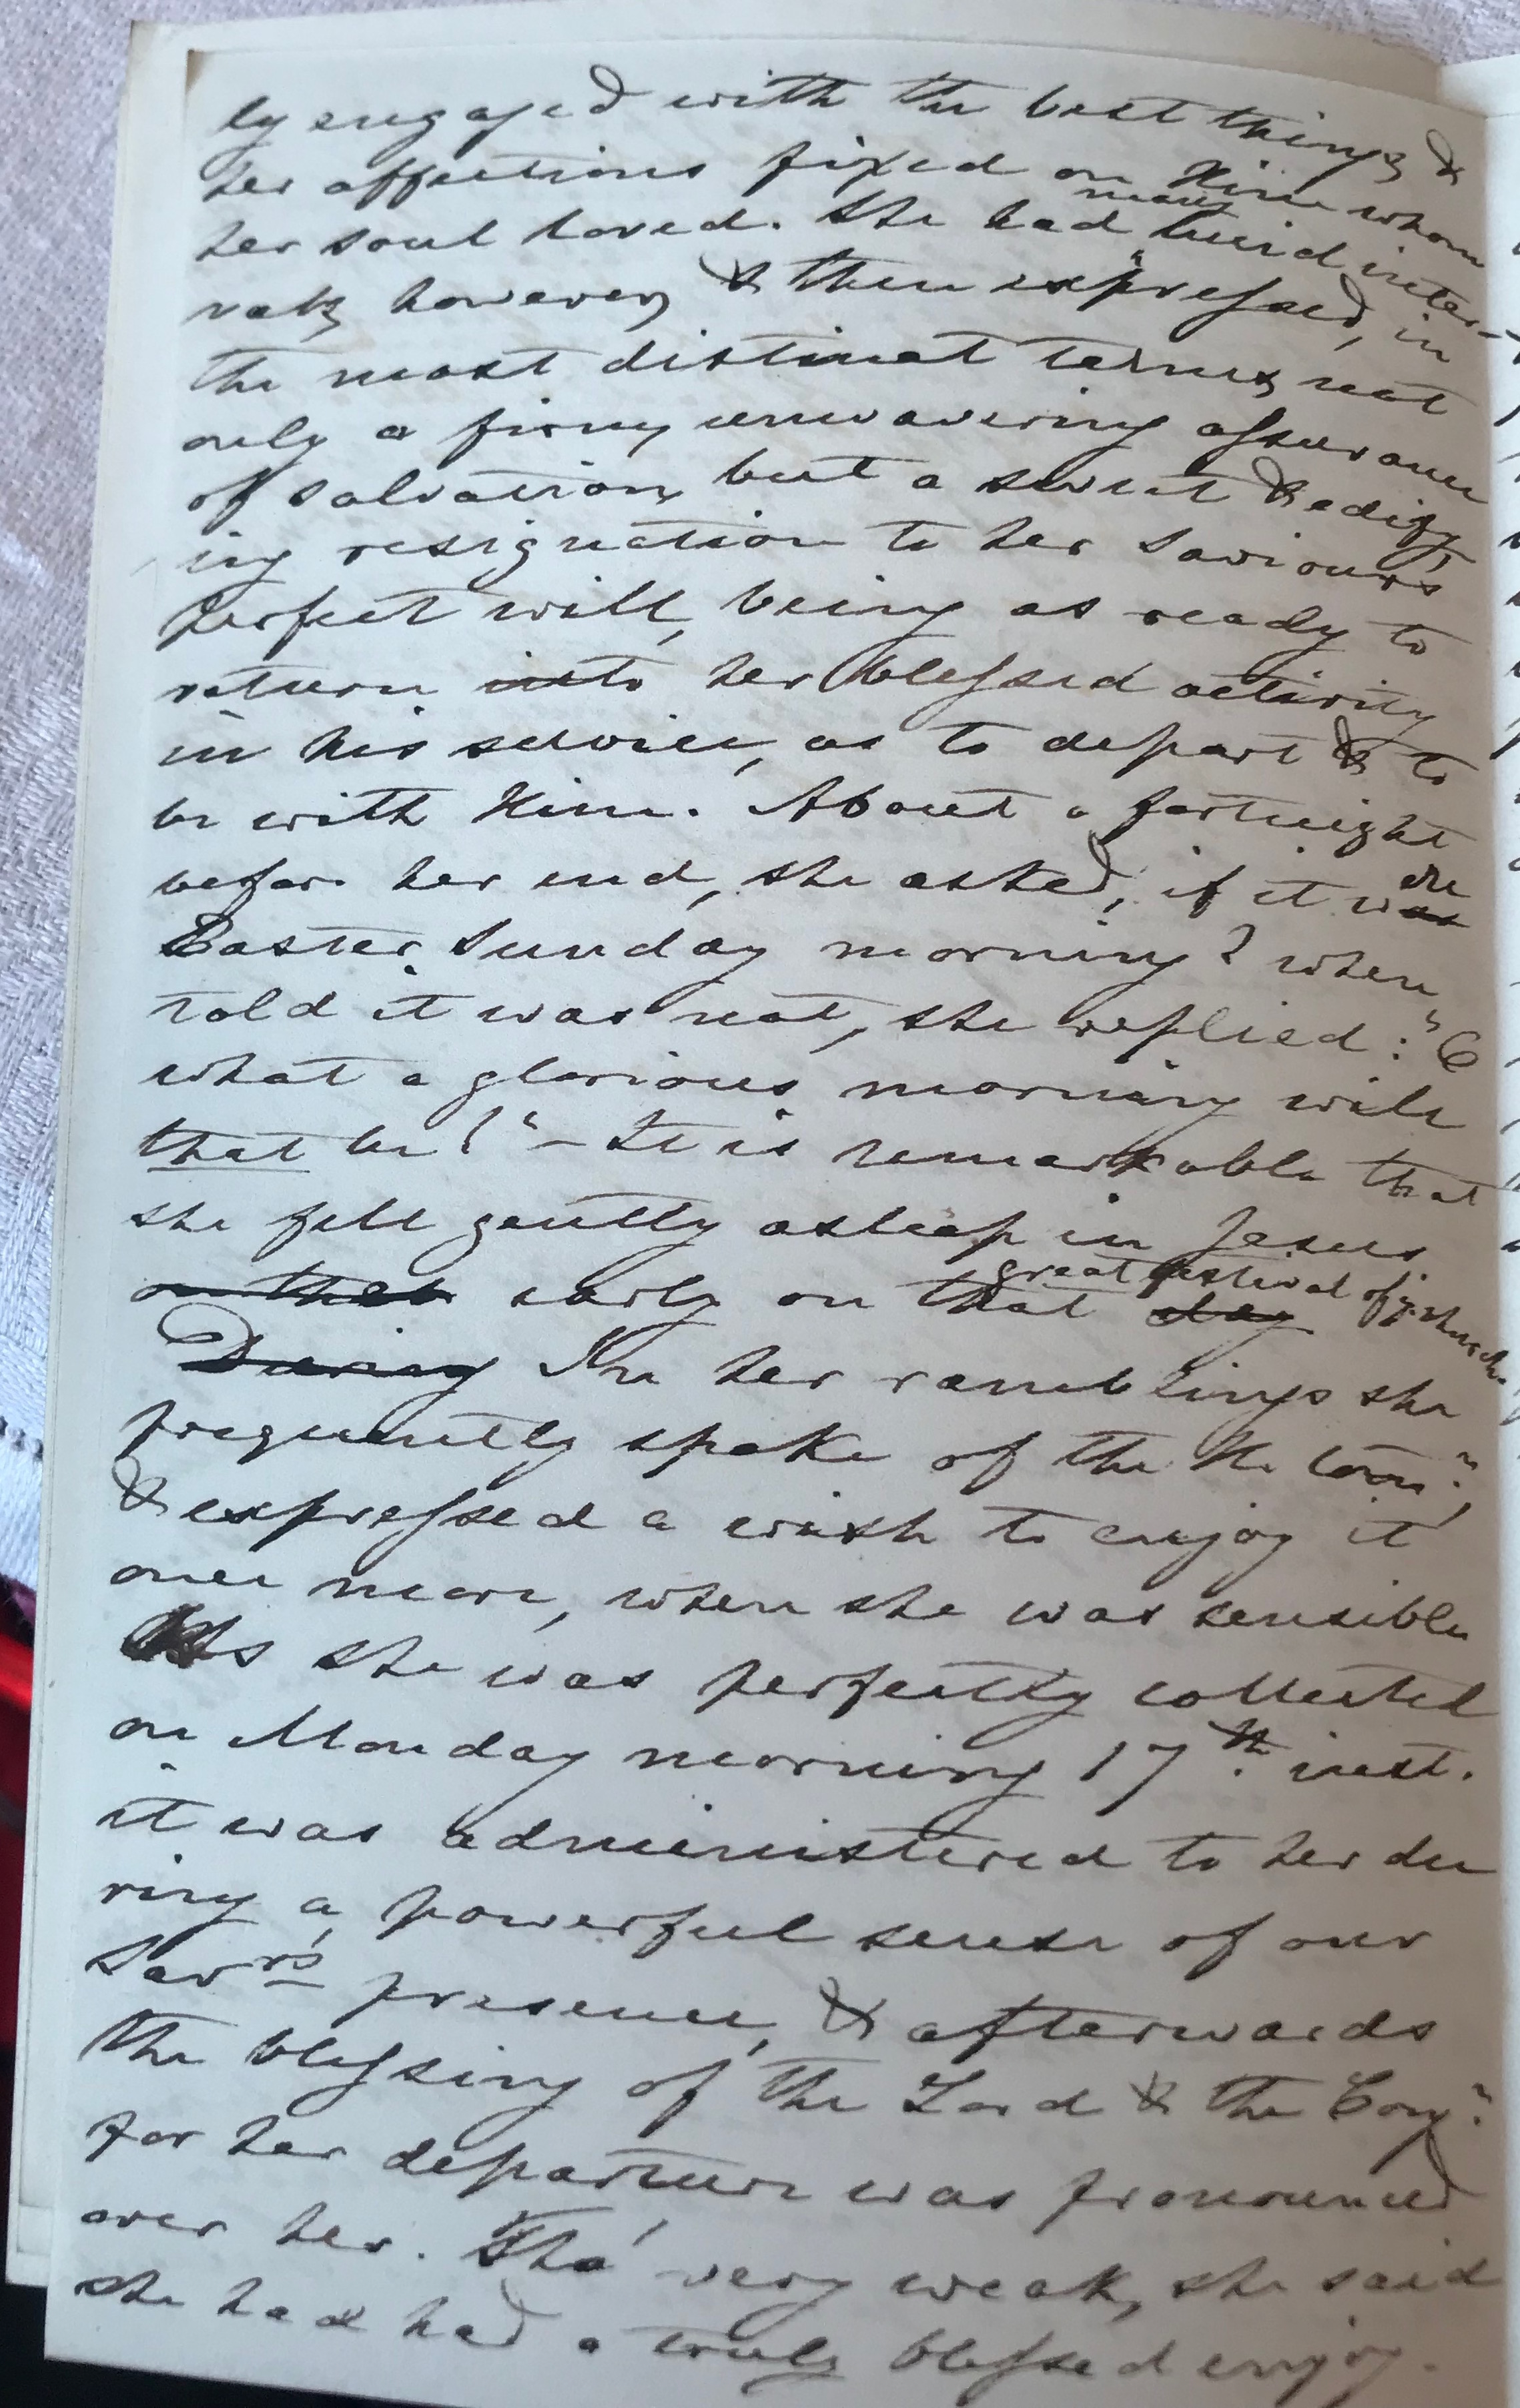 ly engaged with the best things, &
her affections fixed on Him whom
her soul loved. She had many lucid inter-
vals, however, & then expressed, in
the most distinct terms, not
only a firm, unwavering assurance
of salvation, but a sweet & edify-
ing resignation to her Saviour's
perfect will, being as ready to
return into her blessed activity
in his service, as to depart & to
be with Him. About a fortnight
before her end, she asked, if it was were
Easter Sunday morning? when
told it was not, she replied: "O
what a glorious morning will
that be!" – It is remarkable that
she fell gently asleep in Jesus
on that early on that day great festival of ye. church
During In her ramblings she
frequently spoke of the H. Comn.,
& expressed a wish to enjoy it
once more, when she was sensible
As she was perfectly collected
on Monday morning 17th. inst.
it was administered to her du
ring a powerful sense of our
Savrs presence, & afterwards
the blessing of the Lord & the Congn.
for her departure was pronounced
over her. Tho' very weak, she said
she had had a truly blessed enjoy-